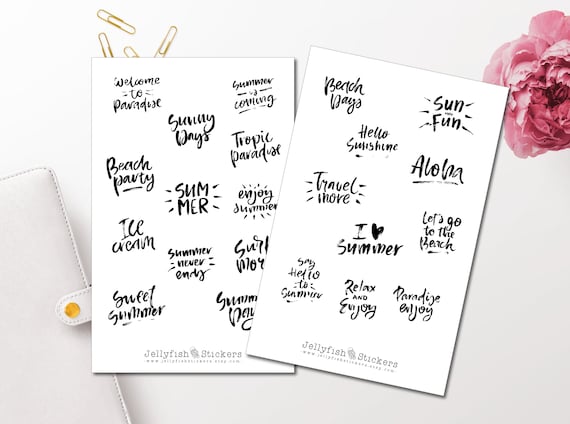 Welcome
to
Paradise
Summer
is
coming
Sunny
Days
Tropic
paradise
Beach
party
SUM
MER
enjoy
summer
ICE
cream
Summer
never
ends
Sweet
Summer
Jellyfish Stickers
www.jellyfishstickers.etsy.com
Beach
Days
Sun
Fun
Hello
Sunshine
Aloha
Travel
more
I
Summer
Let's go
to the
Beach
Say
Hello
to
Summer
Relax
AND
Enjoy
Paradise
enjoy
Jellyfish Stickers
www.jellyfishstickers.etsy.com